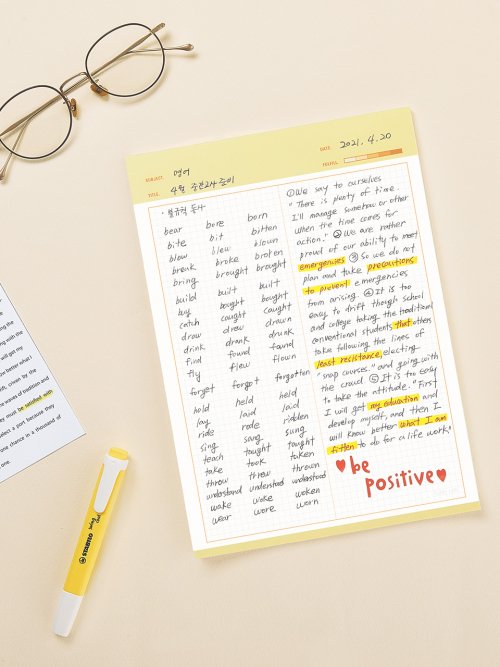 SUBJECT. 영어
DATE. 2021. 4. 20
TITLE. 4월 중간고사 준비
FULFILL.
· 불규칙 동사
bear bore born
bite bit bitten
blow blew blown
break broke broken
bring brought brought
build built built
buy bought bought
catch caught caught
draw drew drawn
drink drank drunk
find found found
fly flew flown
forget forgot forgotten
hold held held
lay laid laid
ride rode ridden
sing sang sung
teach taught taught
take took taken
throw threw thrown
understand understood understood
wake woke woken
wear wore worn
① We say to ourselves
"There is plenty of time.
I'll manage somehow or other
when the time comes for
action." ② We are rather
proud of our ability to meet
emergencies ③ So we do not
plan and take precautions
to prevent emergencies
from arising. ④ It is too
easy to drift though school
and college taking the traditional
conventional students that others
take following the lines of
least resistance, electing
"snap courses" and going with
the crowd ⑤ It is too easy
to take the attitude. "First
I will get my education and
develop myself, and then I
will know better what I am
fitten to do for a life work."
be
positive
with the
will get my
better what I
chosen by the
words of tradition and
must be satisfied with
select a port because they
one chance in a thousand of
one.
STABILO
swing cool